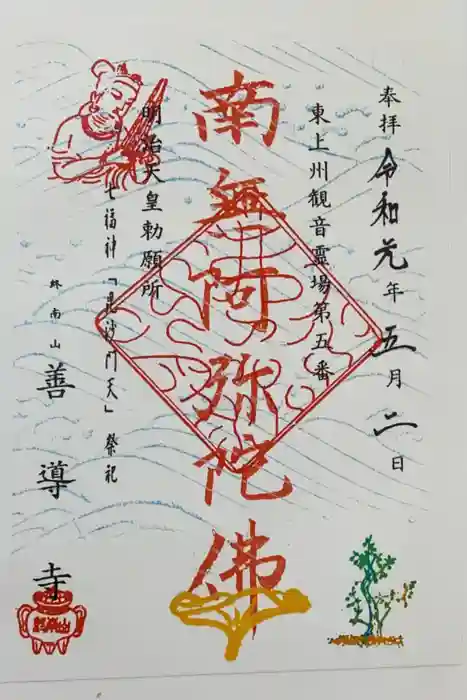 奉拝 令和元年五月二日
東上州観音霊場第五番
南無阿弥陀佛
明治天皇勅願所
七福神「毘沙門天」祭祀
終南山 善導寺